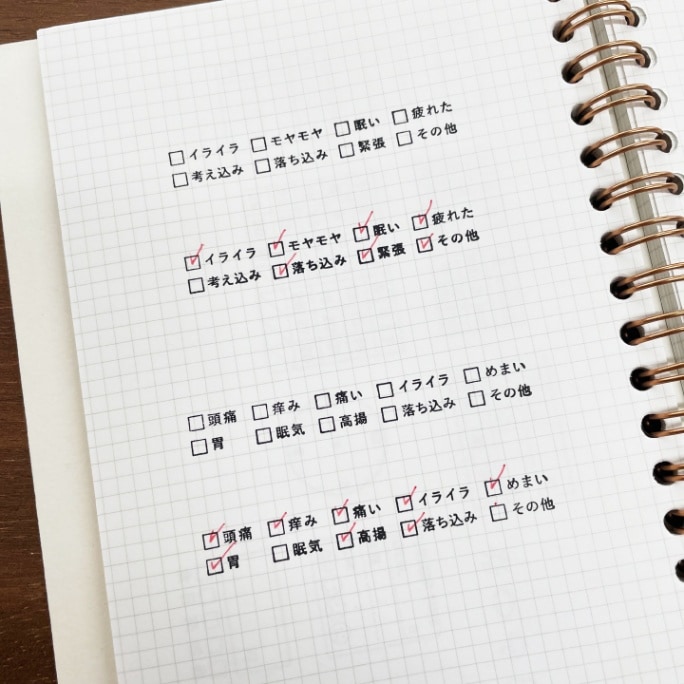 □イライラ □モヤモヤ □眠い □疲れた
□考え込み □落ち込み □緊張 □その他
☑イライラ ☑モヤモヤ ☑眠い ☑疲れた
□考え込み ☑落ち込み ☑緊張 ☑その他
□頭痛 □痒み □痛い □イライラ □めまい
□胃 □眠気 □高揚 □落ち込み □その他
☑頭痛 ☑痒み ☑痛い ☑イライラ ☑めまい
☑胃 □眠気 ☑高揚 ☑落ち込み □その他